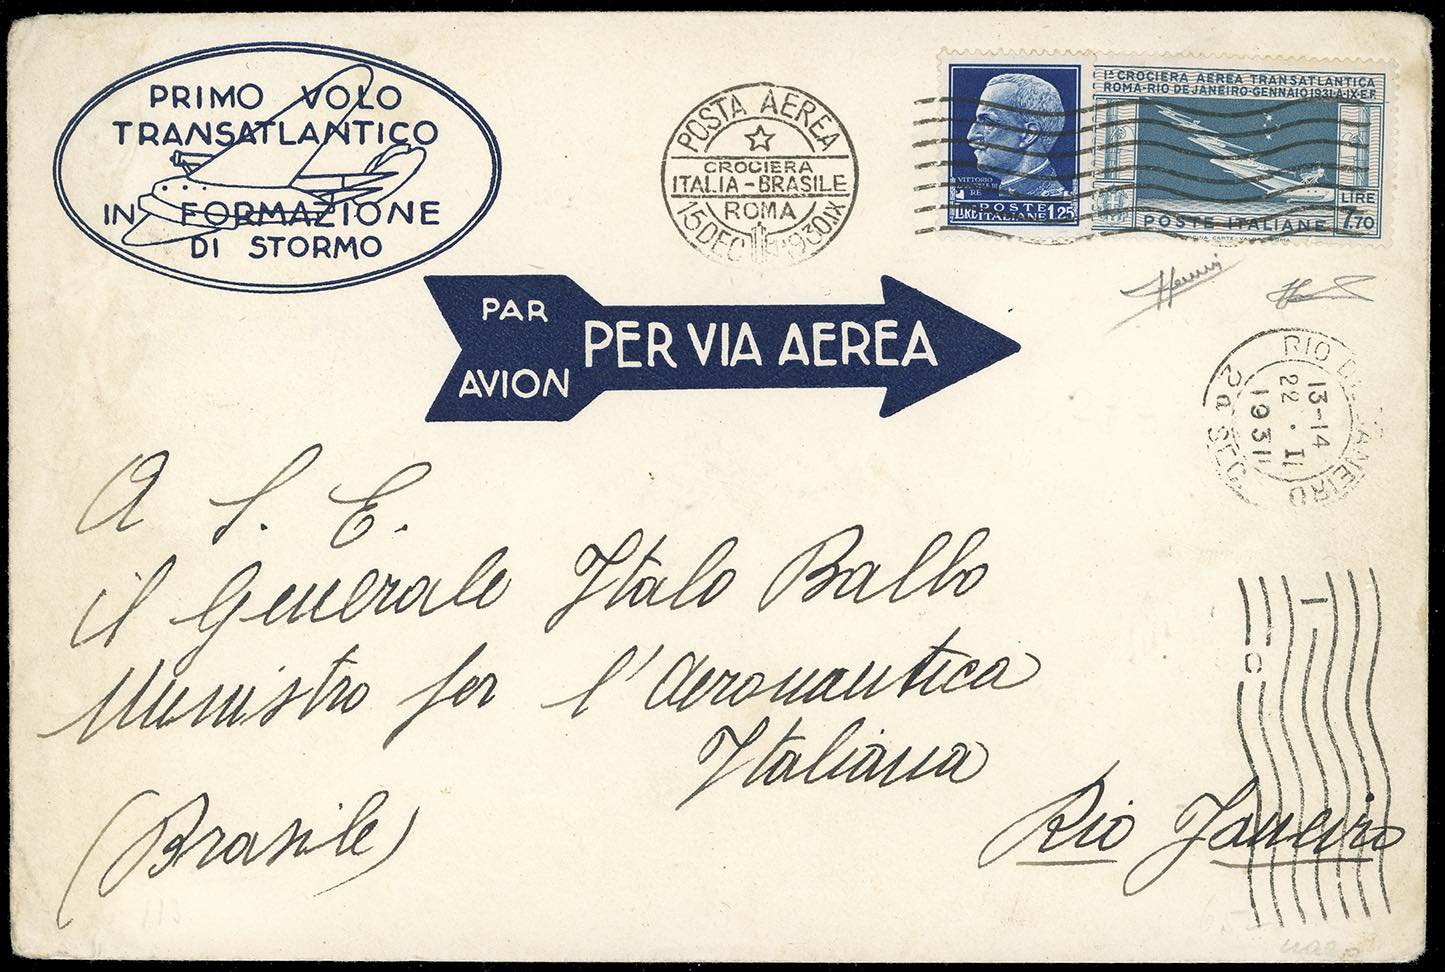 PRIMO VOLO
TRANSATLANTICO
IN FORMAZIONE
DI STORMO
POSTA AEREA
CROCIERA
ITALIA-BRASILE
ROMA
15 DEC 1930 IX
VITTORIO
POSTE
LIRE ITALIANE 1,25
Iª CROCIERA AEREA TRANSATLANTICA
ROMA-RIO DE JANEIRO-GENNAIO 1931.A.IX.E.F.
LIRE
POSTE ITALIANE 7,70
PAR
AVION
PER VIA AEREA
RIO DE JANEIRO
13-14
22 . II
1931
2ª SEC.
A S. E.
il Generale Italo Balbo
Ministro per l'Aeronautica
Italiana
Rio Janeiro
(Brasile)